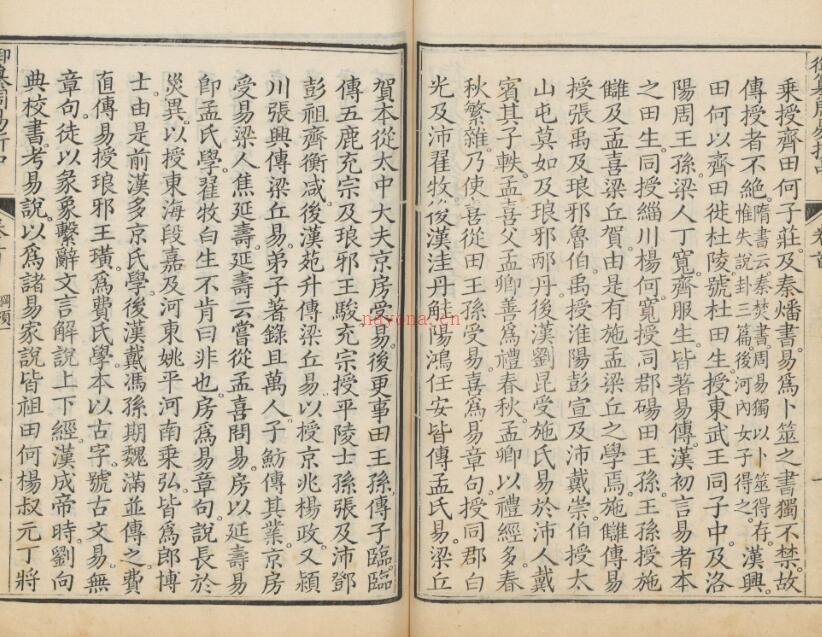 乘授齊田何子莊及秦燔書易爲卜筮之書獨不禁故
傳授者不絶。隋書云秦焚書周易獨以卜筮得存。惟失說卦三篇後河內女子得之。漢興。
田何以齊田徙杜陵號杜田生。授東武王同子中及洛
陽周王孫梁人丁寬齊服生皆著易傳漢初言易者本
之田生同授緇川楊何寬授同郡碭田王孫王孫授施
讎及孟喜梁丘賀由是有施孟梁丘之學焉。施讎傳易
授張禹及琅邪魯伯禹授淮陽彭宣及沛戴崇伯授太
山屯莫如及琅邪邴丹後漢劉昆受施氏易於沛人戴
賓其子軼。孟喜父孟卿善爲禮春秋。孟卿以禮經多春
秋繁雜。乃使喜從田王孫受易喜爲易章句授同郡白
光及沛翟牧後漢洼丹鮭陽鴻任安皆傳孟氏易。梁丘
賀本從太中大夫京房受易。後更事田王孫傳子臨。臨
傳五鹿充宗及琅邪王駿充宗授平陵士孫張及沛鄧
彭祖齊衡咸。後漢范升傳梁丘易以授京兆楊政。又潁
川張興傳梁丘易。弟子著錄且萬人。子魴傳其業。京房
受易梁人焦延壽。延壽云嘗從孟喜問易。房以延壽易
卽孟氏學翟牧白生不肯曰非也。房爲易章句說長於
災異以授東海段嘉及河東姚平河南乘弘皆爲郎博
士由是前漢多京氏學後漢戴馮孫期魏滿並傳之。費
直傳易授琅邪王璜。爲費氏學本以古字號古文易。無
章句。徒以彖象繫辭文言解說上下經漢成帝時劉向
典校書考易說。以爲諸易家說皆祖田何楊叔元丁將
nayona.cn